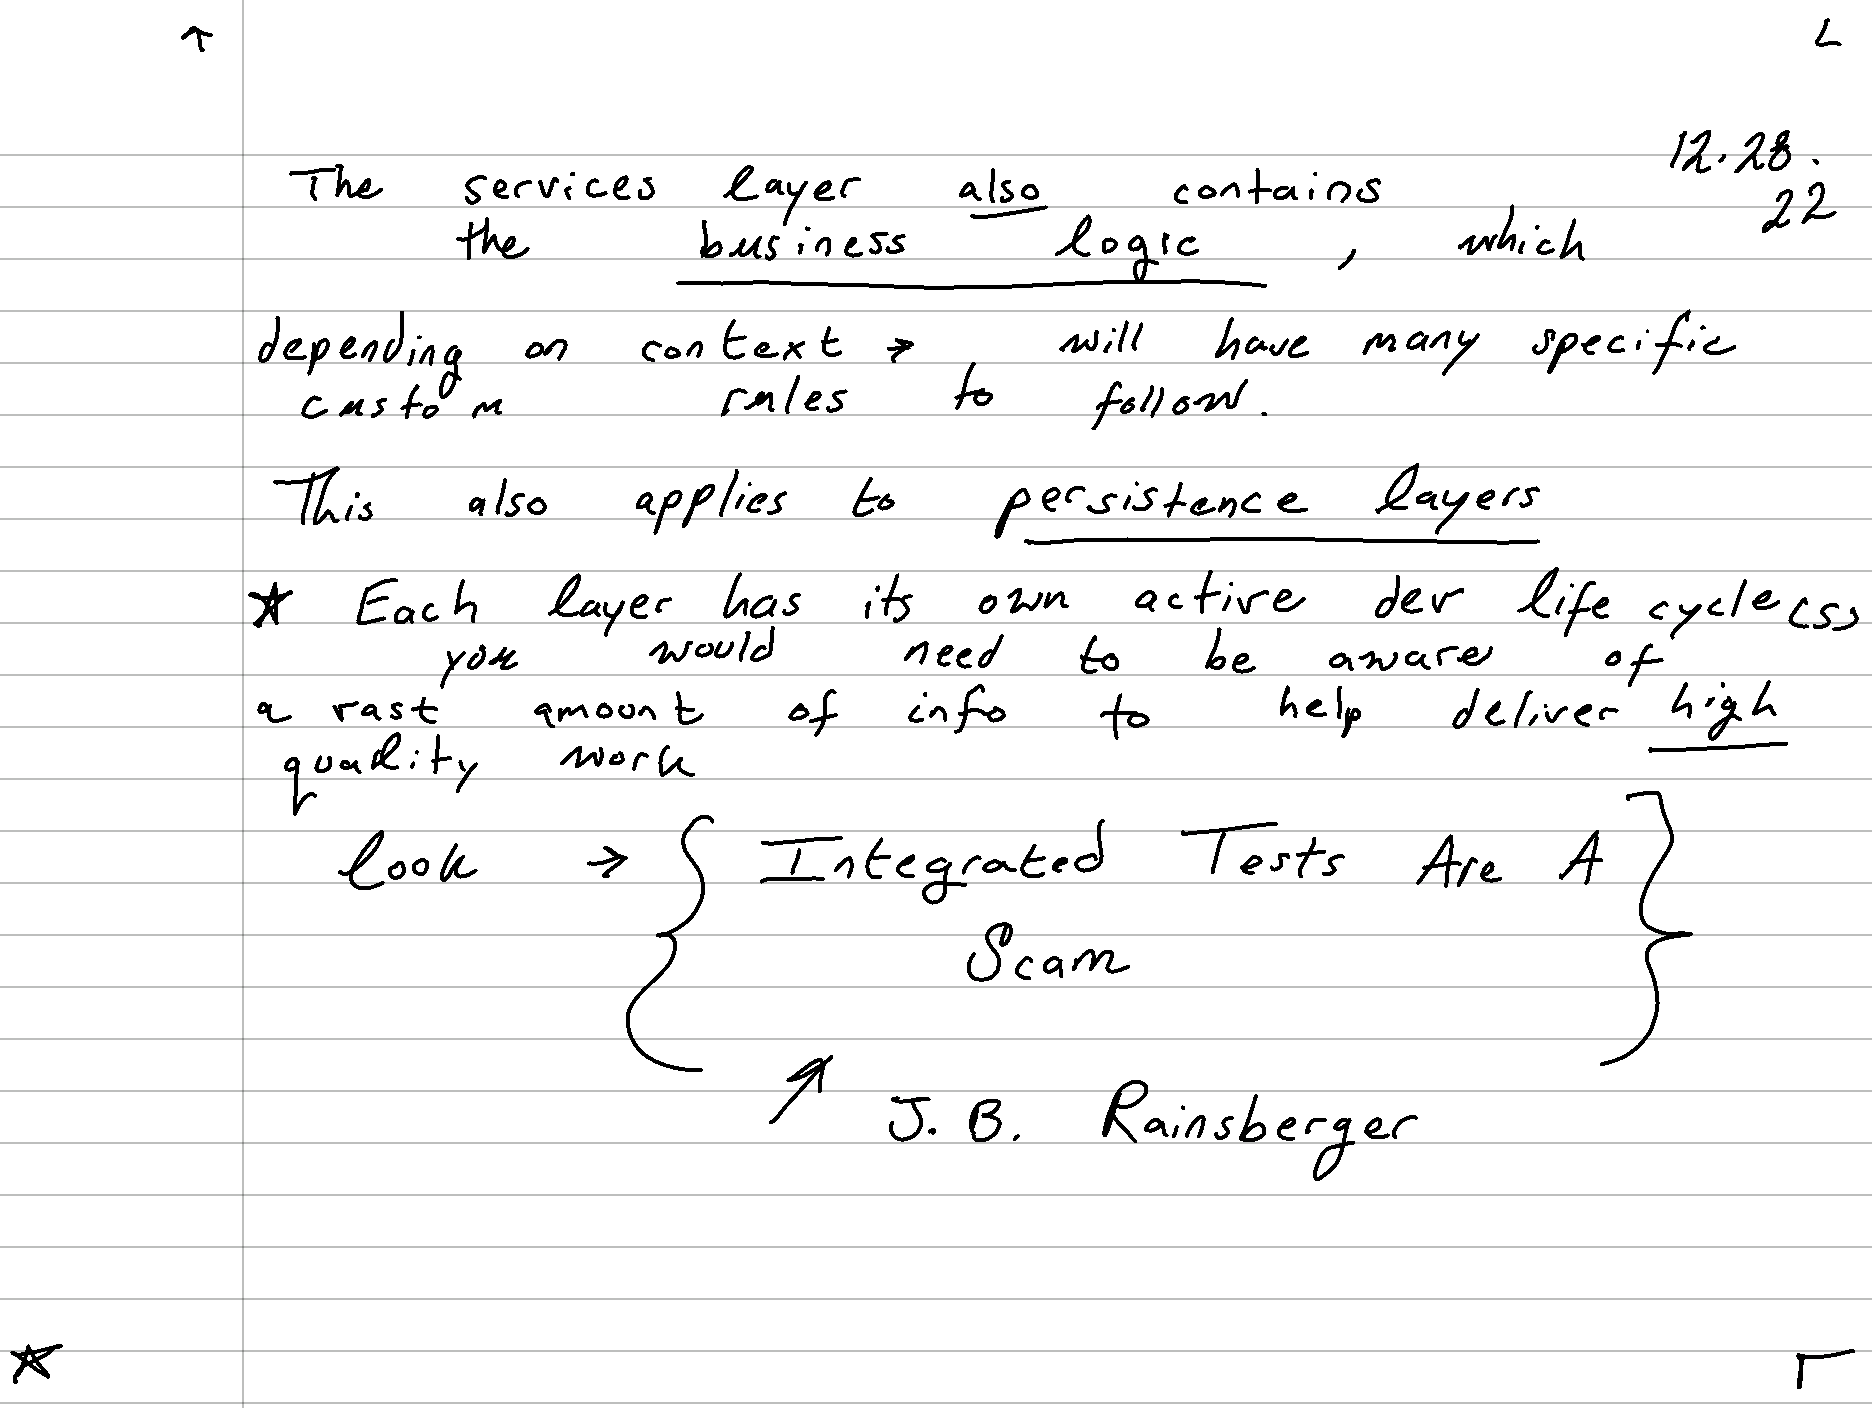 12.28.
22
The services layer also contains
the business logic, which
depending on context → will have many specific
custom rules to follow.
This also applies to persistence layers
★ Each layer has its own active dev life cycle(s)
you would need to be aware of
a vast amount of info to help deliver high
quality work
look → { Integrated Tests Are A
Scam }
↗ J. B. Rainsberger